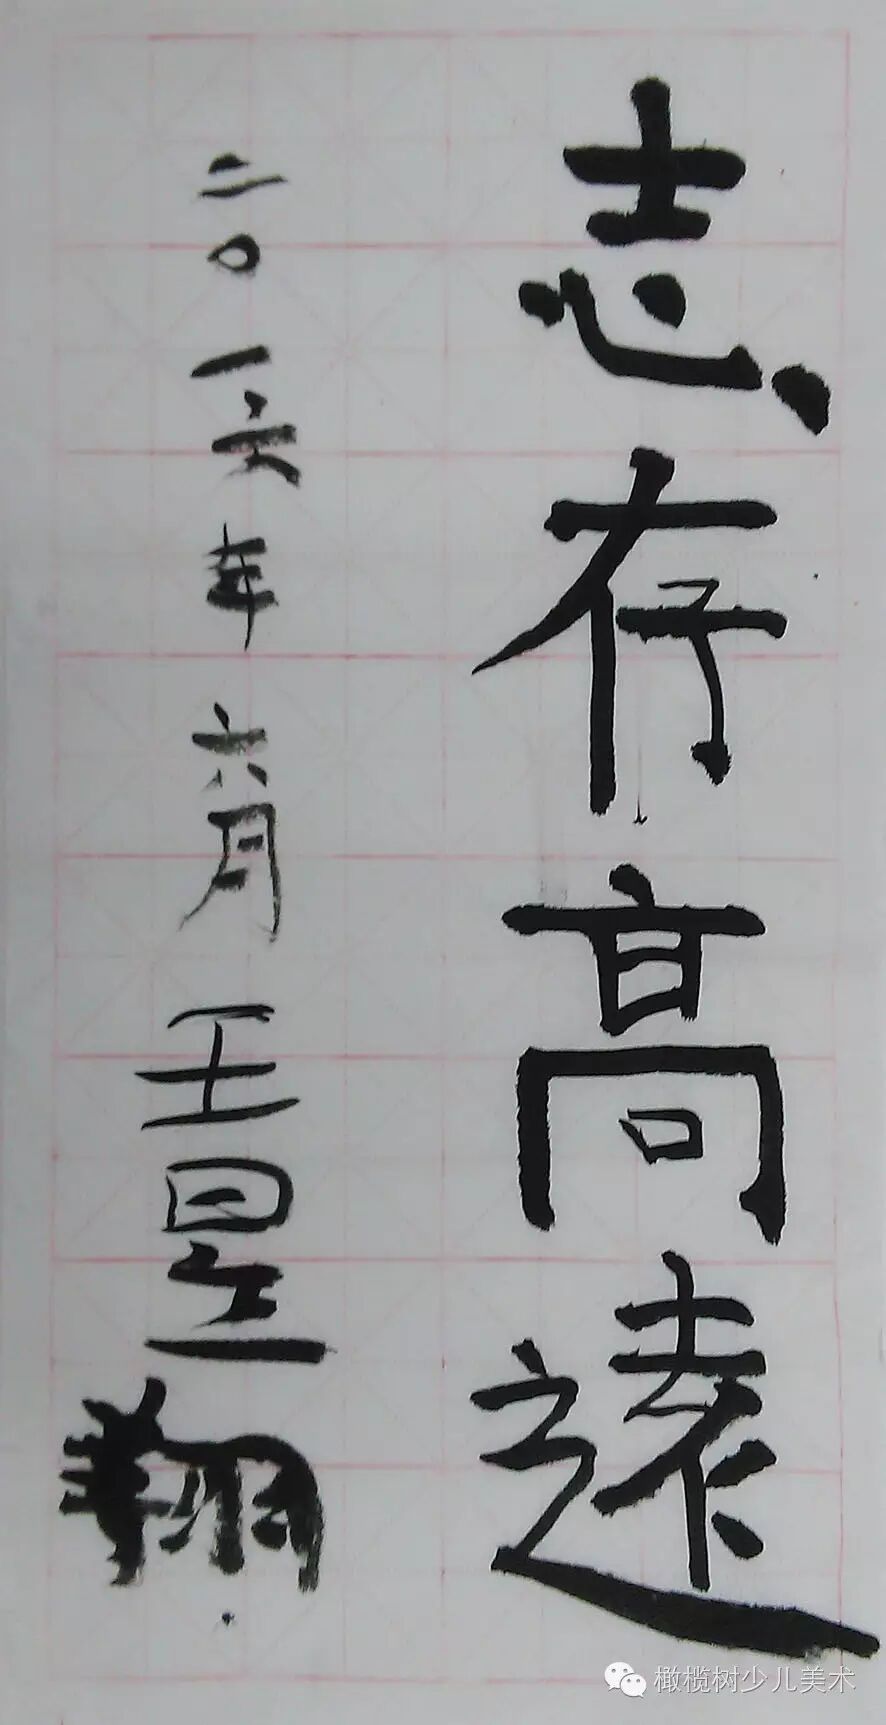 志存高遠
二〇一六年六月王星翔
橄榄树少儿美术